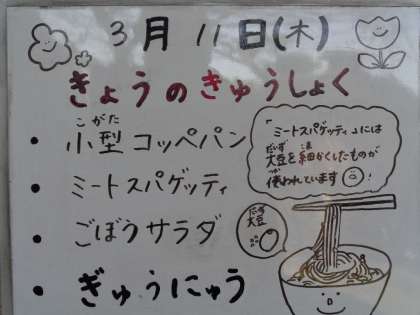 3月11日(木)
きょうのきゅうしょく
こがた
・小型コッペパン
・ミートスパゲッティ
・ごぼうサラダ
・ぎゅうにゅう
「ミートスパゲッティ」には
だいず こま
大豆を細かくしたものが
つか
使われています
だいず
大豆